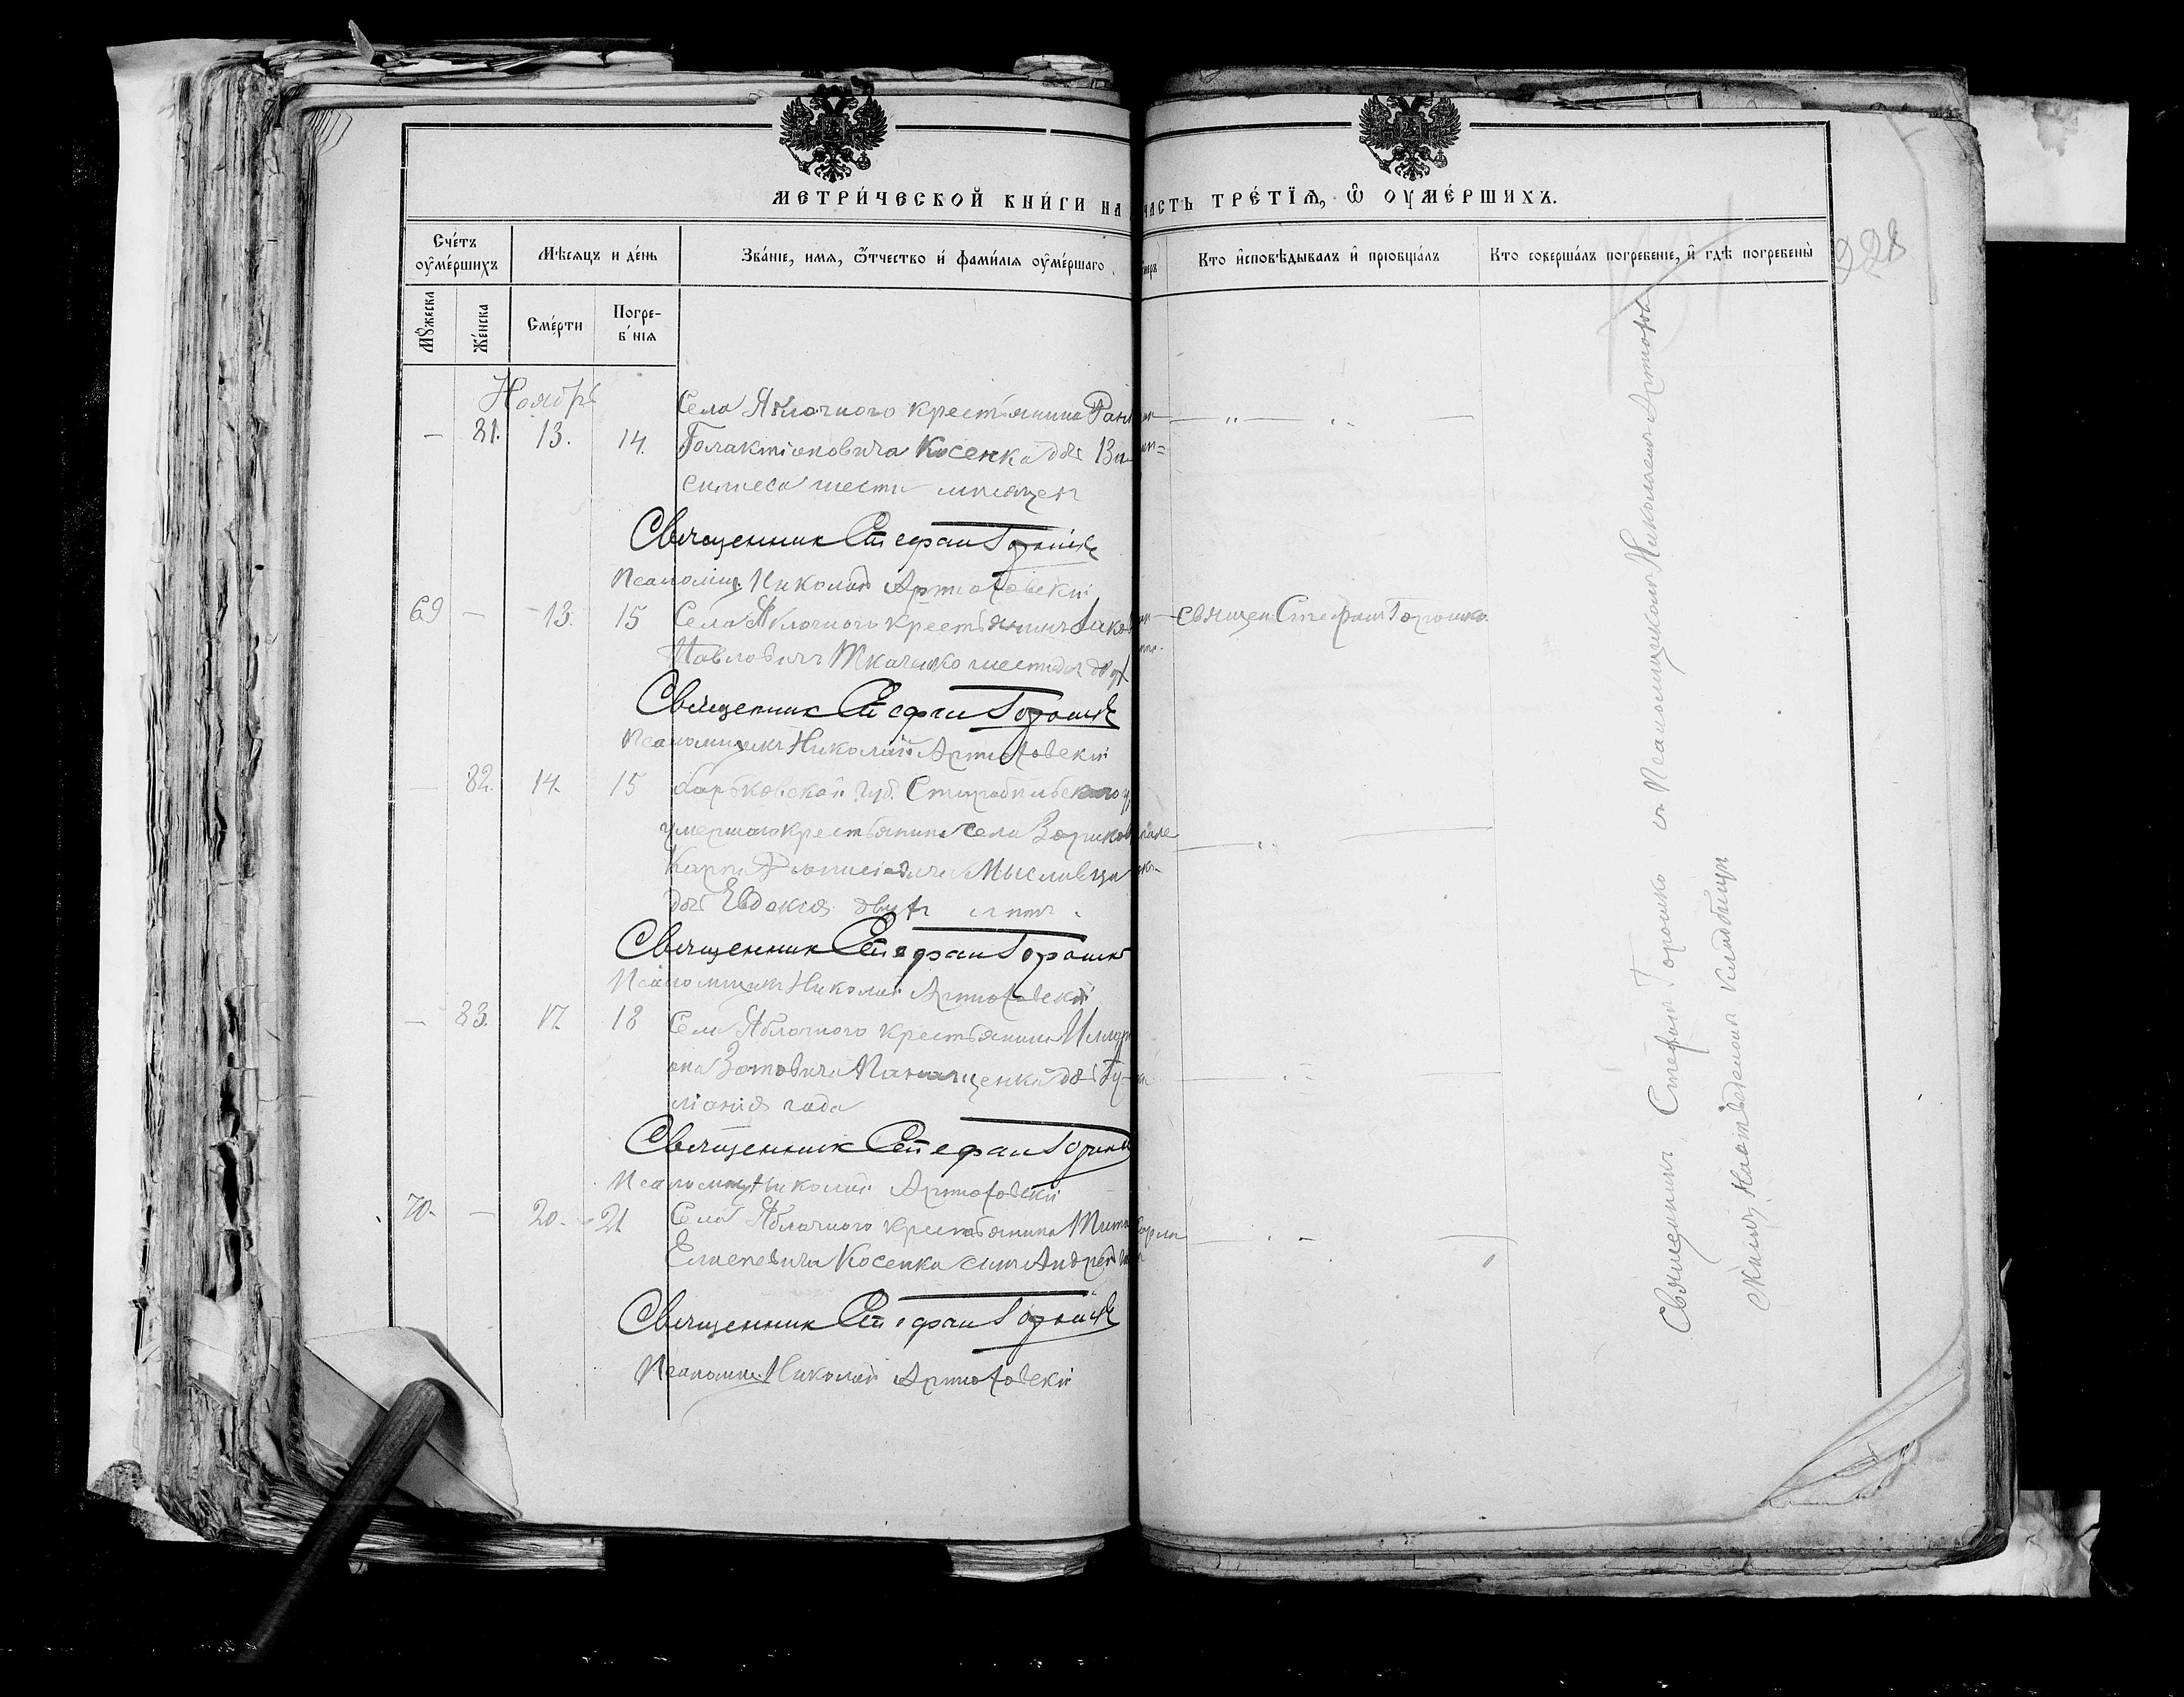 МЕТРИ́ЧЕСКОЙ КНИ́ГИ НА ЧАСТЬ ТРЕ́ТЇѦ, Ѿ ОУМЕ́РШИХЪ.
228
Сче́тъ оуме́ршихъ
Мѣсяцъ и де́нь
Зва́ніе, имя, ѿтчество и фами́лія оуме́ршаго
Кто исповѣ́дывалъ и приобща́лъ
Кто соверша́лъ погребеніе, и гдѣ погребены̀
Мꙋжеска
Же́нска
Сме́рти
Погре-
б нія
Ноябрь
Села Яблочного крестьянина
— 81. 13. 14. Галактіоновича Косенка дочь
шести мѣсяцев
Священник Стефан Горошко
Псаломщ. Николай Артюховскій
69 — 13. 15 Села Яблочного крестьянин Іаков
Священ. Стефан Горошко
Павлович Ткаченко шестидес.
Священник Стефан Горошко
Псаломщик Николай Артюховскій
— 82. 14. 15 Харьковской губ. Старобѣльского у
умершаго крестьянина села
Карпа Мысливца
дочь Евдокия двух лѣтъ
Священник Стефан Горошко
Псаломщик Николай Артюховскій
— 83. 17. 18 Села Яблочного крестьянина Иллар
она Зотовича дочь
ліанія года
Священник Стефан Горошко
Псаломщ. Николай Артюховскій
70. — 20. 21 Села Яблочного крестьянина Тита
Косенка сын Андрей
Священник Стефан Горошко
Псаломщ. Николай Артюховскій
Священник Стефан Горошко съ Псаломщиком Николаем Артюхов
скимъ, на отведеном кладбищѣ